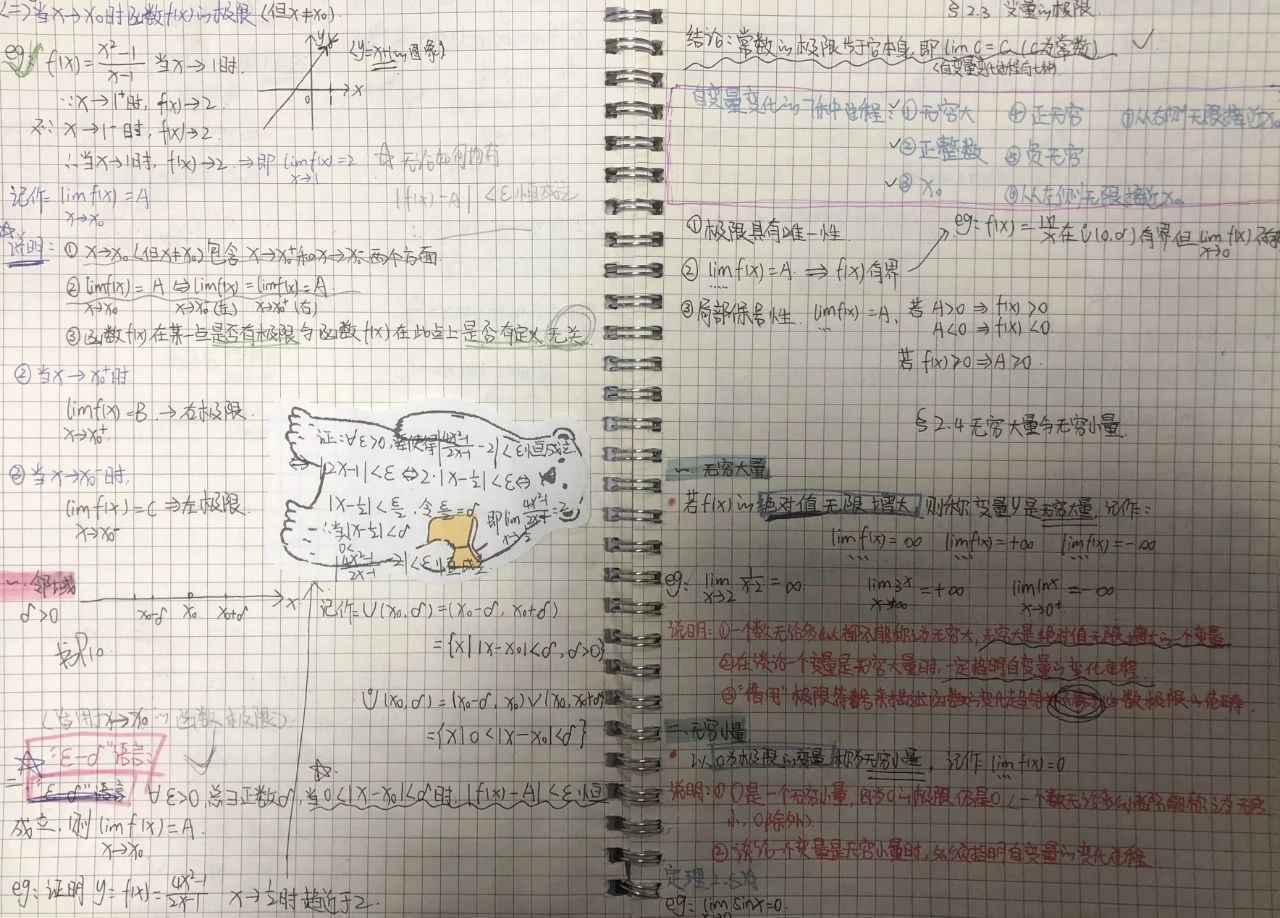 (二)当x→x₀时函数f(x)的极限(但x≠x₀).
eg: f(x)=\frac{x²-1}{x-1} 当x→1时.
(y=x+1的图象)
y
x
0 1
∵x→1⁺时, f(x)→2.
又∵x→1⁻时, f(x)→2.
∴当x→1时, f(x)→2. ⇒即 \lim_{x→1} f(x)=2
☆ 无论如何均有
|f(x)-A|<ε恒成立
记作= \lim_{x→x₀} f(x)=A
☆
说明: ① x→x₀(但x≠x₀)包含 x→x₀⁺和x→x₀⁻两个方面.
② \lim_{x→x₀} f(x)=A ⇔ \lim_{x→x₀⁻(左)} f(x)=\lim_{x→x₀⁺(右)} f(x)=A
③函数f(x)在某一点是否有极限与函数f(x)在此点上是否有定义无关.
② 当x→x₀⁺时
\lim_{x→x₀⁺} f(x)=B → 右极限.
③ 当x→x₀⁻时,
\lim_{x→x₀⁻} f(x)=C ⇒左极限.
证:∀ε>0, 要使得|\frac{4x²-1}{2x-1}-2|<ε恒成立
⇔|2x-1|<ε⇔2·|x-½|<ε⇔
|x-½|<\frac{ε}{2}, 令\frac{ε}{2}=δ
∴当0<|x-½|<δ
|\frac{4x²-1}{2x-1}-2|<ε恒成立
即\lim_{x→½}\frac{4x²-1}{2x-1}=2
一. 邻域
δ>0
x₀-δ x₀ x₀+δ x
书P10.
记作=U(x₀,δ)=(x₀-δ, x₀+δ)
={x| |x-x₀|<δ, δ>0}
Ů(x₀,δ)=(x₀-δ, x₀)∨(x₀, x₀+δ)
={x|0<|x-x₀|<δ}
(常用时x→x₀的函数极限)
☆ "ε-δ"语言:
= "ε-δ"语言
☆.
∀ε>0, 总∃正数δ, 当0<|x-x₀|<δ时, |f(x)-A|<ε恒
成立, 则\lim_{x→x₀} f(x)=A.
eg: 证明 y=f(x)=\frac{4x²-1}{2x-1} x→½时趋近于2.
§2.3 变量的极限.
结论:常数的极限等于它本身, 即 lim C=C (C为常数)
(自变量变化过程有七种)
自变量变化的7种过程: ①无穷大 ④正无穷 ⑦从右侧无限接近x₀
②正整数 ⑤负无穷
③ x₀ ⑥从左侧无限接近x₀
①极限具有唯一性.
eg: f(x)= 在Ů(0,δ)有界但\lim_{x→0} f(x)不存
② lim f(x)=A. ⇒ f(x)有界
③局部保号性 lim f(x)=A, 若 A>0 ⇒f(x)>0
A<0 ⇒f(x)<0
若 f(x)≥0⇒A≥0.
§2.4 无穷大量与无穷小量.
一. 无穷大量
·若f(x)的绝对值无限增大,则称变量y是无穷大量,记作:
lim f(x)=∞ lim f(x)=+∞ lim f(x)=-∞
eg: \lim_{x→2} \frac{1}{x-2}=∞ \lim_{x→+∞} 3^x=+∞ \lim_{x→0⁺} lnx=-∞
说明:①一个数无论多么大都不能称之为无穷大,无穷大是绝对值无限增大的一个变量
②在谈论一个变量是无穷大量时,一定指明自变量的变化过程.
③"借用"极限符号来描述函数的变化趋势 函数极限的范畴.
二. 无穷小量
·以0为极限的变量称为无穷小量, 记作 lim f(x)=0
说明:① 0是一个无穷小量, 因为0的极限仍是0 (一个数无论多么小都不能称之为无穷
小, 0除外).
②谈论一个变量是无穷小量时,必须指明自变量的变化过程
定理2.5为
eg: lim sinx=0.